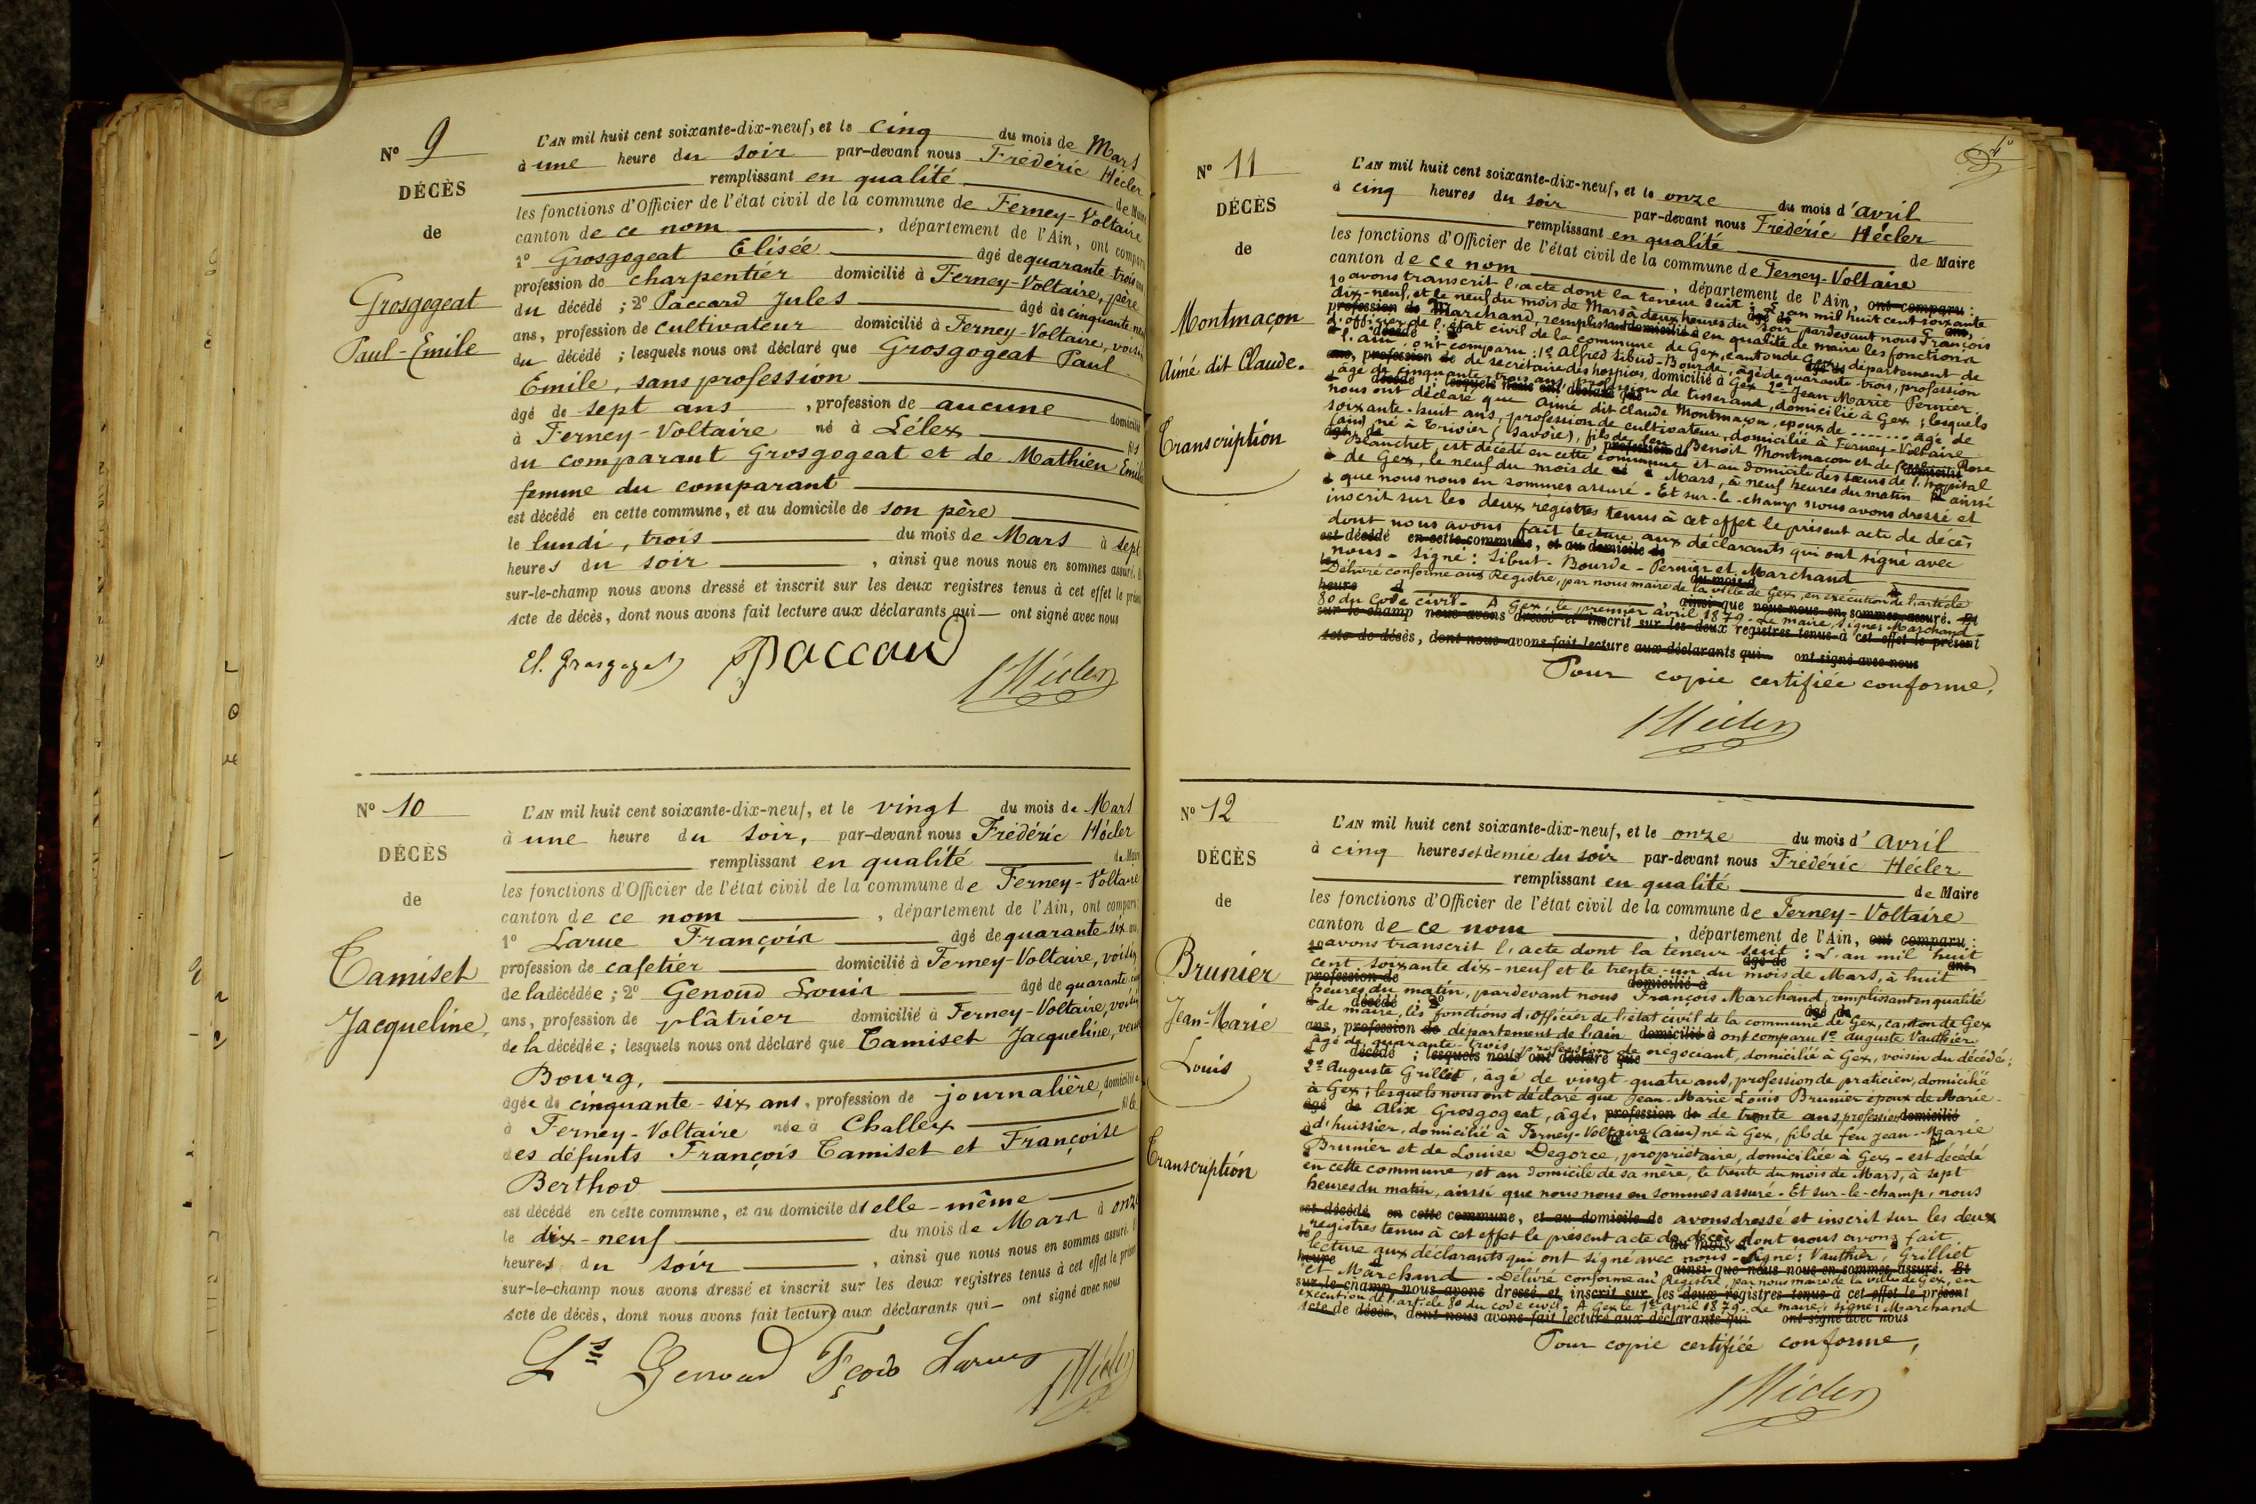 N° 9
DÉCÈS
de
Grosgogeat
Paul-Emile
L'AN mil huit cent soixante-dix-neuf, et le cinq du mois de Mars
à une heure du soir par-devant nous Frédéric Hécler
remplissant en qualité de Maire
les fonctions d'Officier de l'état civil de la commune de Ferney-Voltaire
canton de ce nom, département de l'Ain, ont comparu
1° Grosgogeat Elisée âgé de quarante trois ans
profession de charpentier domicilié à Ferney-Voltaire, père
du décédé ; 2° Paccard Jules âgé de cinquante neuf
ans, profession de cultivateur domicilié à Ferney-Voltaire, voisin
du décédé ; lesquels nous ont déclaré que Grosgogeat Paul
Emile, sans profession
âgé de sept ans, profession de aucune domicilié
à Ferney-Voltaire né à Lélex fils
du comparant Grosgogeat et de Mathieu Emilie
femme du comparant
est décédé en cette commune, et au domicile de son père
le lundi, trois du mois de Mars à sept
heures du soir, ainsi que nous nous en sommes assuré. Et
sur-le-champ nous avons dressé et inscrit sur les deux registres tenus à cet effet le présent
Acte de décès, dont nous avons fait lecture aux déclarants qui ont signé avec nous
El. Grosgogeat JPaccard FHécler
N° 10
DÉCÈS
de
Tamiset
Jacqueline,
L'AN mil huit cent soixante-dix-neuf, et le vingt du mois de Mars
à une heure du soir, par-devant nous Frédéric Hécler
remplissant en qualité de Maire
les fonctions d'Officier de l'état civil de la commune de Ferney-Voltaire
canton de ce nom, département de l'Ain, ont comparu
1° Larue François âgé de quarante six ans,
profession de cafetier domicilié à Ferney-Voltaire, voisin
de la décédée ; 2° Genoud Louis âgé de quarante cinq
ans, profession de plâtrier domicilié à Ferney-Voltaire, voisin
de la décédée ; lesquels nous ont déclaré que Tamiset Jacqueline, veuve
Bourg,
âgée de cinquante-six ans, profession de journalière, domiciliée
à Ferney-Voltaire née à Challex fille
des défunts François Tamiset et Françoise
Berthod
est décédé en cette commune, et au domicile d'elle-même
le dix-neuf du mois de Mars à onze
heures du soir, ainsi que nous nous en sommes assuré. Et
sur-le-champ nous avons dressé et inscrit sur les deux registres tenus à cet effet le présent
Acte de décès, dont nous avons fait lecture aux déclarants qui ont signé avec nous
Ls Genoud Fçois Larue FHécler
N° 11
DÉCÈS
de
Montmaçon
Aimé dit Claude.
Transcription
L'AN mil huit cent soixante-dix-neuf, et le onze du mois d'avril
à cinq heures du soir par-devant nous Frédéric Hécler
remplissant en qualité de Maire
les fonctions d'Officier de l'état civil de la commune de Ferney-Voltaire
canton de ce nom, département de l'Ain, ont comparu :
1° avons transcrit l'acte dont la teneur suit : L'an mil huit cent soixante
dix-neuf, et le neuf du mois de Mars à deux heures du soir pardevant nous François
Marchand, remplissant en qualité de maire les fonctions
d'officier de l'état civil de la commune de Gex, canton de Gex département de
l'ain, ont comparu : 1° Alfred Sibud-Bourde, âgé de quarante-trois, profession
de secrétaire des hospices, domicilié à Gex 2° Jean Marie Pernier,
âgé de cinquante-trois ans, profession de tisserand, domicilié à Gex ; lesquels
nous ont déclaré que Aimé dit Claude Montmaçon, époux de ....... âgé de
soixante-huit ans, profession de cultivateur, domicilié à Ferney-Voltaire
(ain) né à Trivier (Savoie), fils de feu Benoit Montmaçon et de feue Rose
Blanchet, est décédé en cette commune et au domicile des sœurs de l'hopital
de Gex, le neuf du mois de Mars, à neuf heures du matin ainsi
que nous nous en sommes assuré. Et sur-le-champ nous avons dressé et
inscrit sur les deux registres tenus à cet effet le présent acte de décès
dont nous avons fait lecture aux déclarants qui ont signé avec
est décédé en cette commune, et au domicile de
nous - signé : Sibut-Bourde - Pernier et Marchand
Délivré conforme aux Registre, par nous maire de la ville de Gex, en exécution de l'article
80 du Code civil - A Gex, le premier avril 1879. Le maire, signé Marchand
sur-le-champ nous avons dressé et inscrit sur les deux registres tenus à cet effet le présent
Acte de décès, dont nous avons fait lecture aux déclarants qui ont signé avec nous
Pour copie certifiée conforme,
FHécler
N° 12
DÉCÈS
de
Brunier
Jean-Marie
Louis
Transcription
L'AN mil huit cent soixante-dix-neuf, et le onze du mois d'avril
à cinq heures et demie du soir par-devant nous Frédéric Hécler
remplissant en qualité de Maire
les fonctions d'Officier de l'état civil de la commune de Ferney-Voltaire
canton de ce nom, département de l'Ain, ont comparu :
1° avons transcrit l'acte dont la teneur suit : L'an mil huit
cent soixante dix-neuf et le trente-un du mois de Mars, à huit
heures du matin, pardevant nous François Marchand, remplissant en qualité
de maire, les fonctions d'officier de l'état civil de la commune de Gex, canton de Gex
ans, profession de département de l'ain domicilié à ont comparu 1° Auguste Vauthier
âgé de quarante-trois, profession de négociant, domicilié à Gex, voisin du décédé ;
décédé ; lesquels nous ont déclaré que
2° Auguste Grilliet, âgé de vingt-quatre ans, profession de praticien, domicilié
à Gex ; lesquels nous ont déclaré que Jean-Marie Louis Brunier époux de Marie-
Alix Grosgogeat, âgé, profession de de trente ans profession domicilié
d'huissier, domicilié à Ferney-Voltaire (ain) né à Gex, fils de feu Jean-Marie
Brunier et de Louise Degorce, propriétaire, domiciliée à Gex - est décédé
en cette commune, et au domicile de sa mère, le trente du mois de Mars, à sept
heures du matin, ainsi que nous nous en sommes assuré. Et sur-le-champ, nous
est décédé en cette commune, et au domicile de avons dressé et inscrit sur les deux
registres tenus à cet effet le présent acte de décès dont nous avons fait
lecture aux déclarants qui ont signé avec nous - Signé : Vauthier, Grilliet
ainsi que nous nous en sommes assuré. Et
et Marchand - Délivré conforme au Registre, par nous maire de la ville de Gex, en
sur-le-champ, nous avons dressé et inscrit sur les deux registres tenus à cet effet le présent
exécution de l'article 80 du code civil. A Gex le 1er avril 1879. Le maire, signé : Marchand
Acte de décès, dont nous avons fait lecture aux déclarants qui ont signé avec nous
Pour copie certifiée conforme,
FHécler